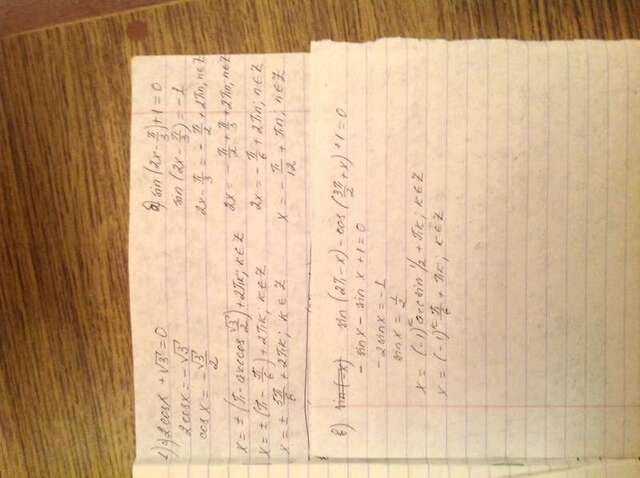 1) а) 2cosx + √3 = 0
2cosx = -√3
cosx = -√3/2
x = ±(π - arccos √3/2) + 2πk; k∈Z
x = ±(π - π/6) + 2πk, k∈Z
x = ± 5π/6 + 2πk; k∈Z
б) sin(2x - π/3) + 1 = 0
sin(2x - π/3) = -1
2x - π/3 = -π/2 + 2πn, n∈Z
2x = -π/2 + π/3 + 2πn, n∈Z
2x = -π/6 + 2πn; n∈Z
x = -π/12 + πn, n∈Z
в) sin(-x) sin(2π-x) - cos(3π/2 + x) + 1 = 0
-sinx - sinx + 1 = 0
-2sinx = -1
sinx = 1/2
x = (-1)^k arcsin 1/2 + πk; k∈Z
x = (-1)^k π/6 + πk; k∈Z